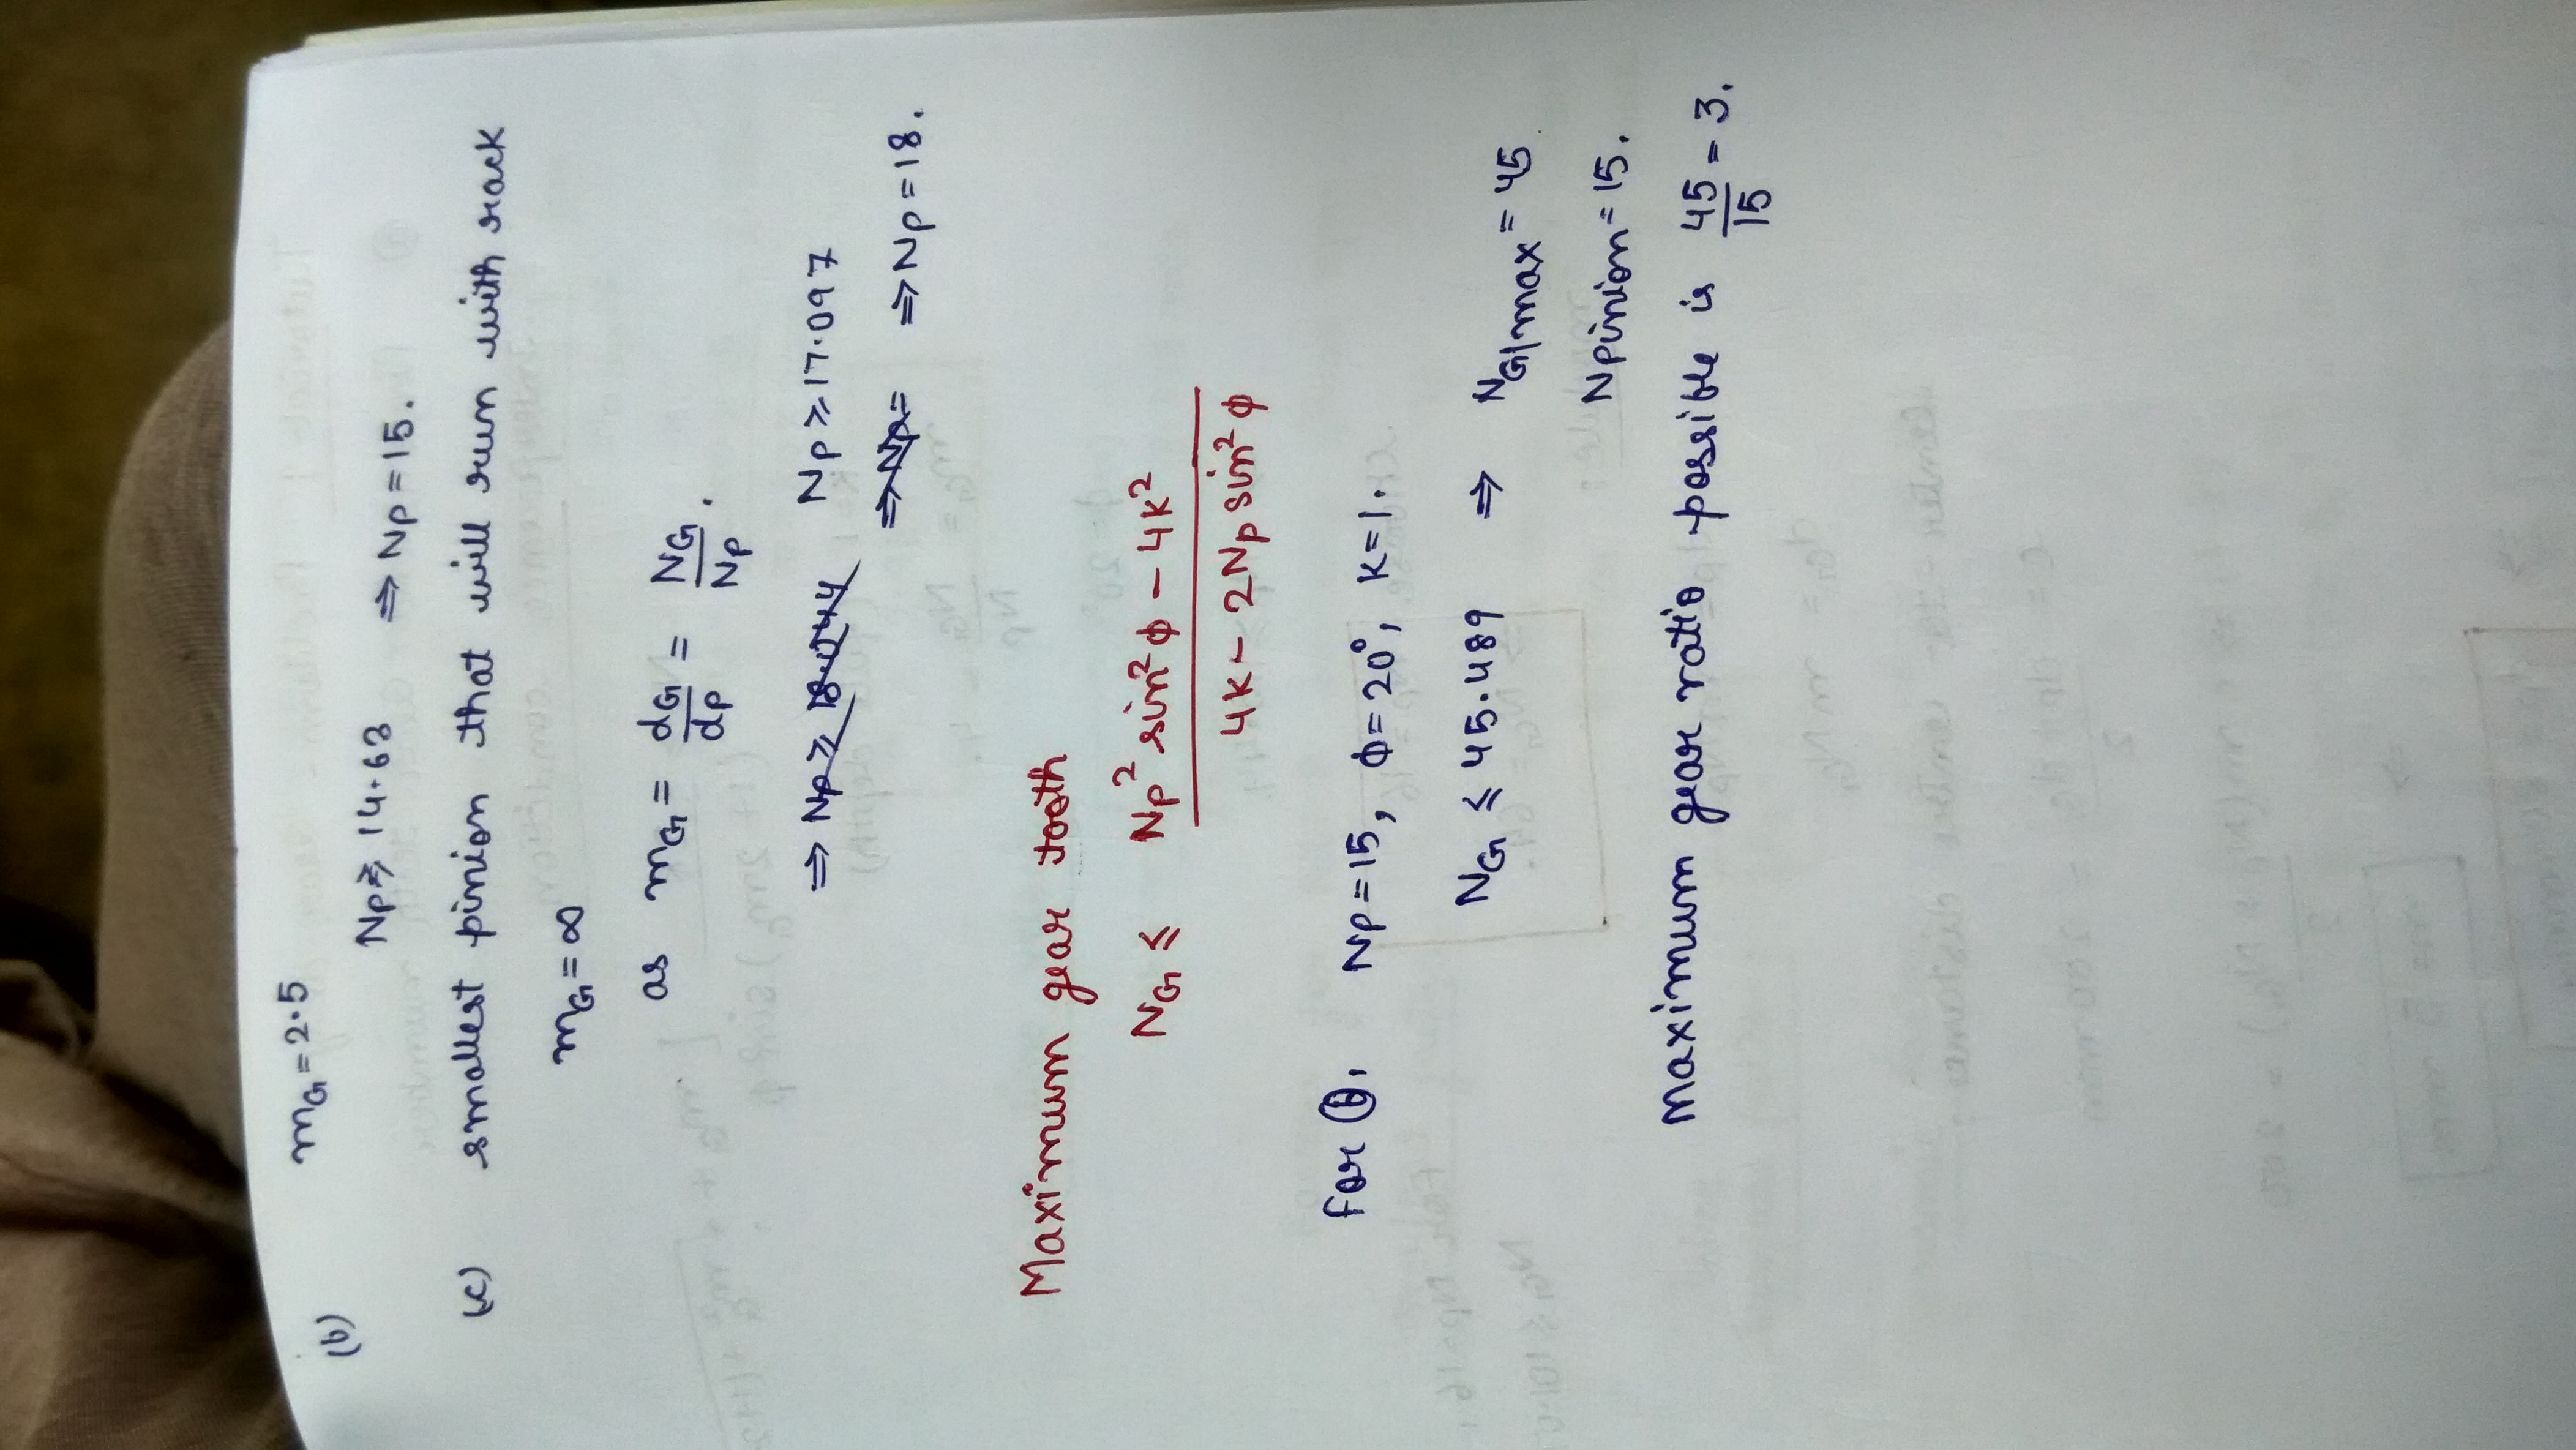 (b) mG = 2.5
Np ⩾ 14.63 ⇒ Np = 15.
(c) smallest pinion that will run with rack
mG = ∞
as mG = dG/dp = NG/Np.
⇒ Np ⩾ 17.097
⇒ Np = 18.
Maximum gear tooth
NG ⩽ (Np² sin²ϕ − 4K²)/(4K − 2Np sin²ϕ)
For (b), Np = 15, ϕ = 20°, K = 1.
NG ⩽ 45.489 ⇒ NG|max = 45
Npinion = 15.
Maximum gear ratio possible is 45/15 = 3.